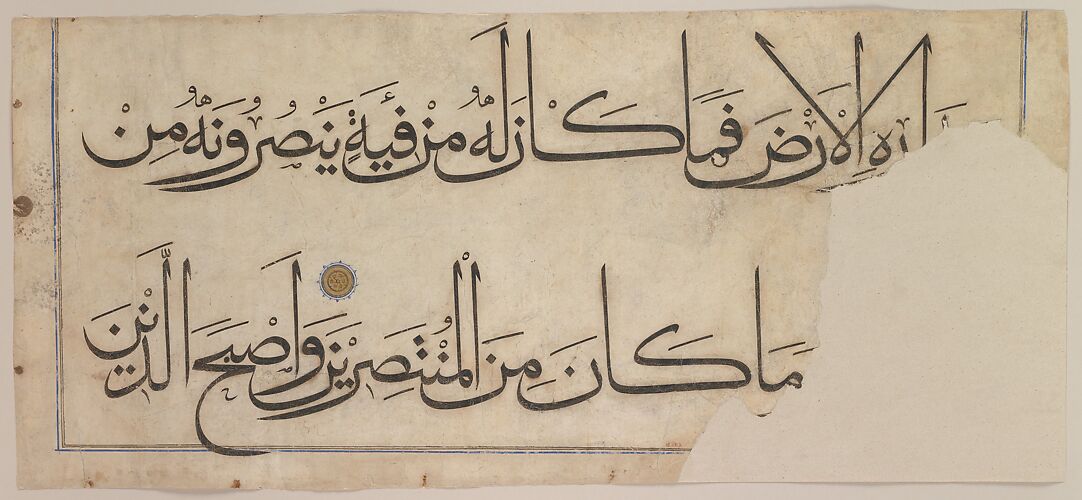 اره الْاَرْضَ فَمَا كَانَ لَهُ مِنْ فِئَةٍ يَنْصُرُونَهُ مِنْ
مَا كَانَ مِنَ الْمُنْتَصِرِينَ وَاَصْبَحَ الَّذِينَ